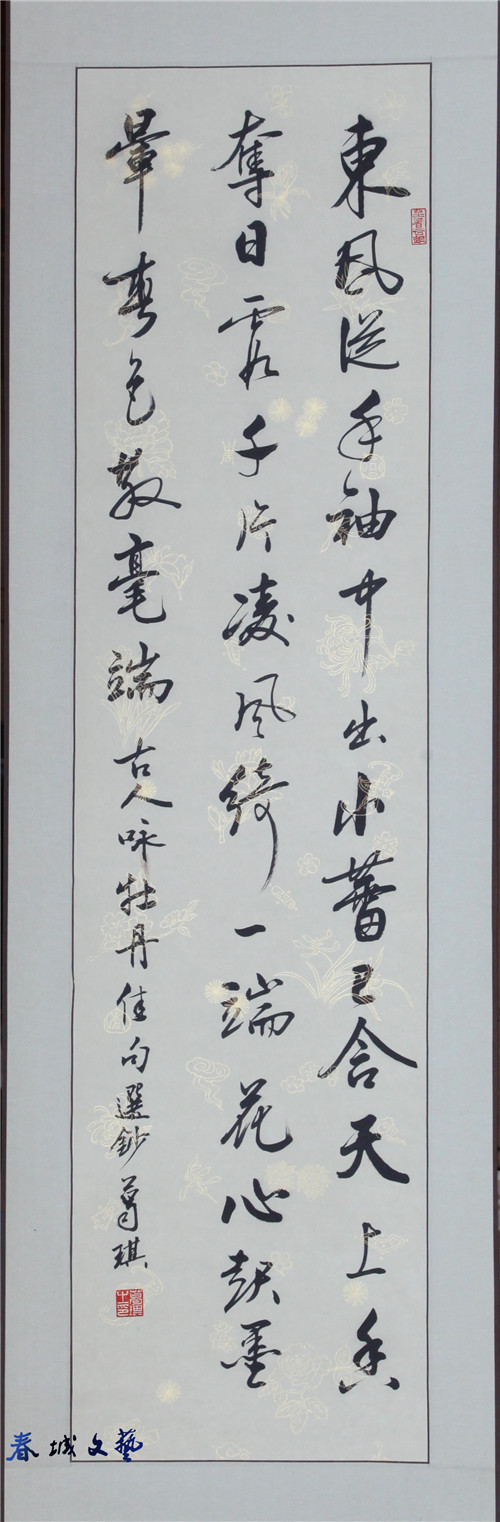 東風從手袖中出小蕾已含天上香
奪日霞千片凌風綺一端花心起墨
暈春色散毫端 古人咏牡丹佳句選鈔 葛琪
春城文藝